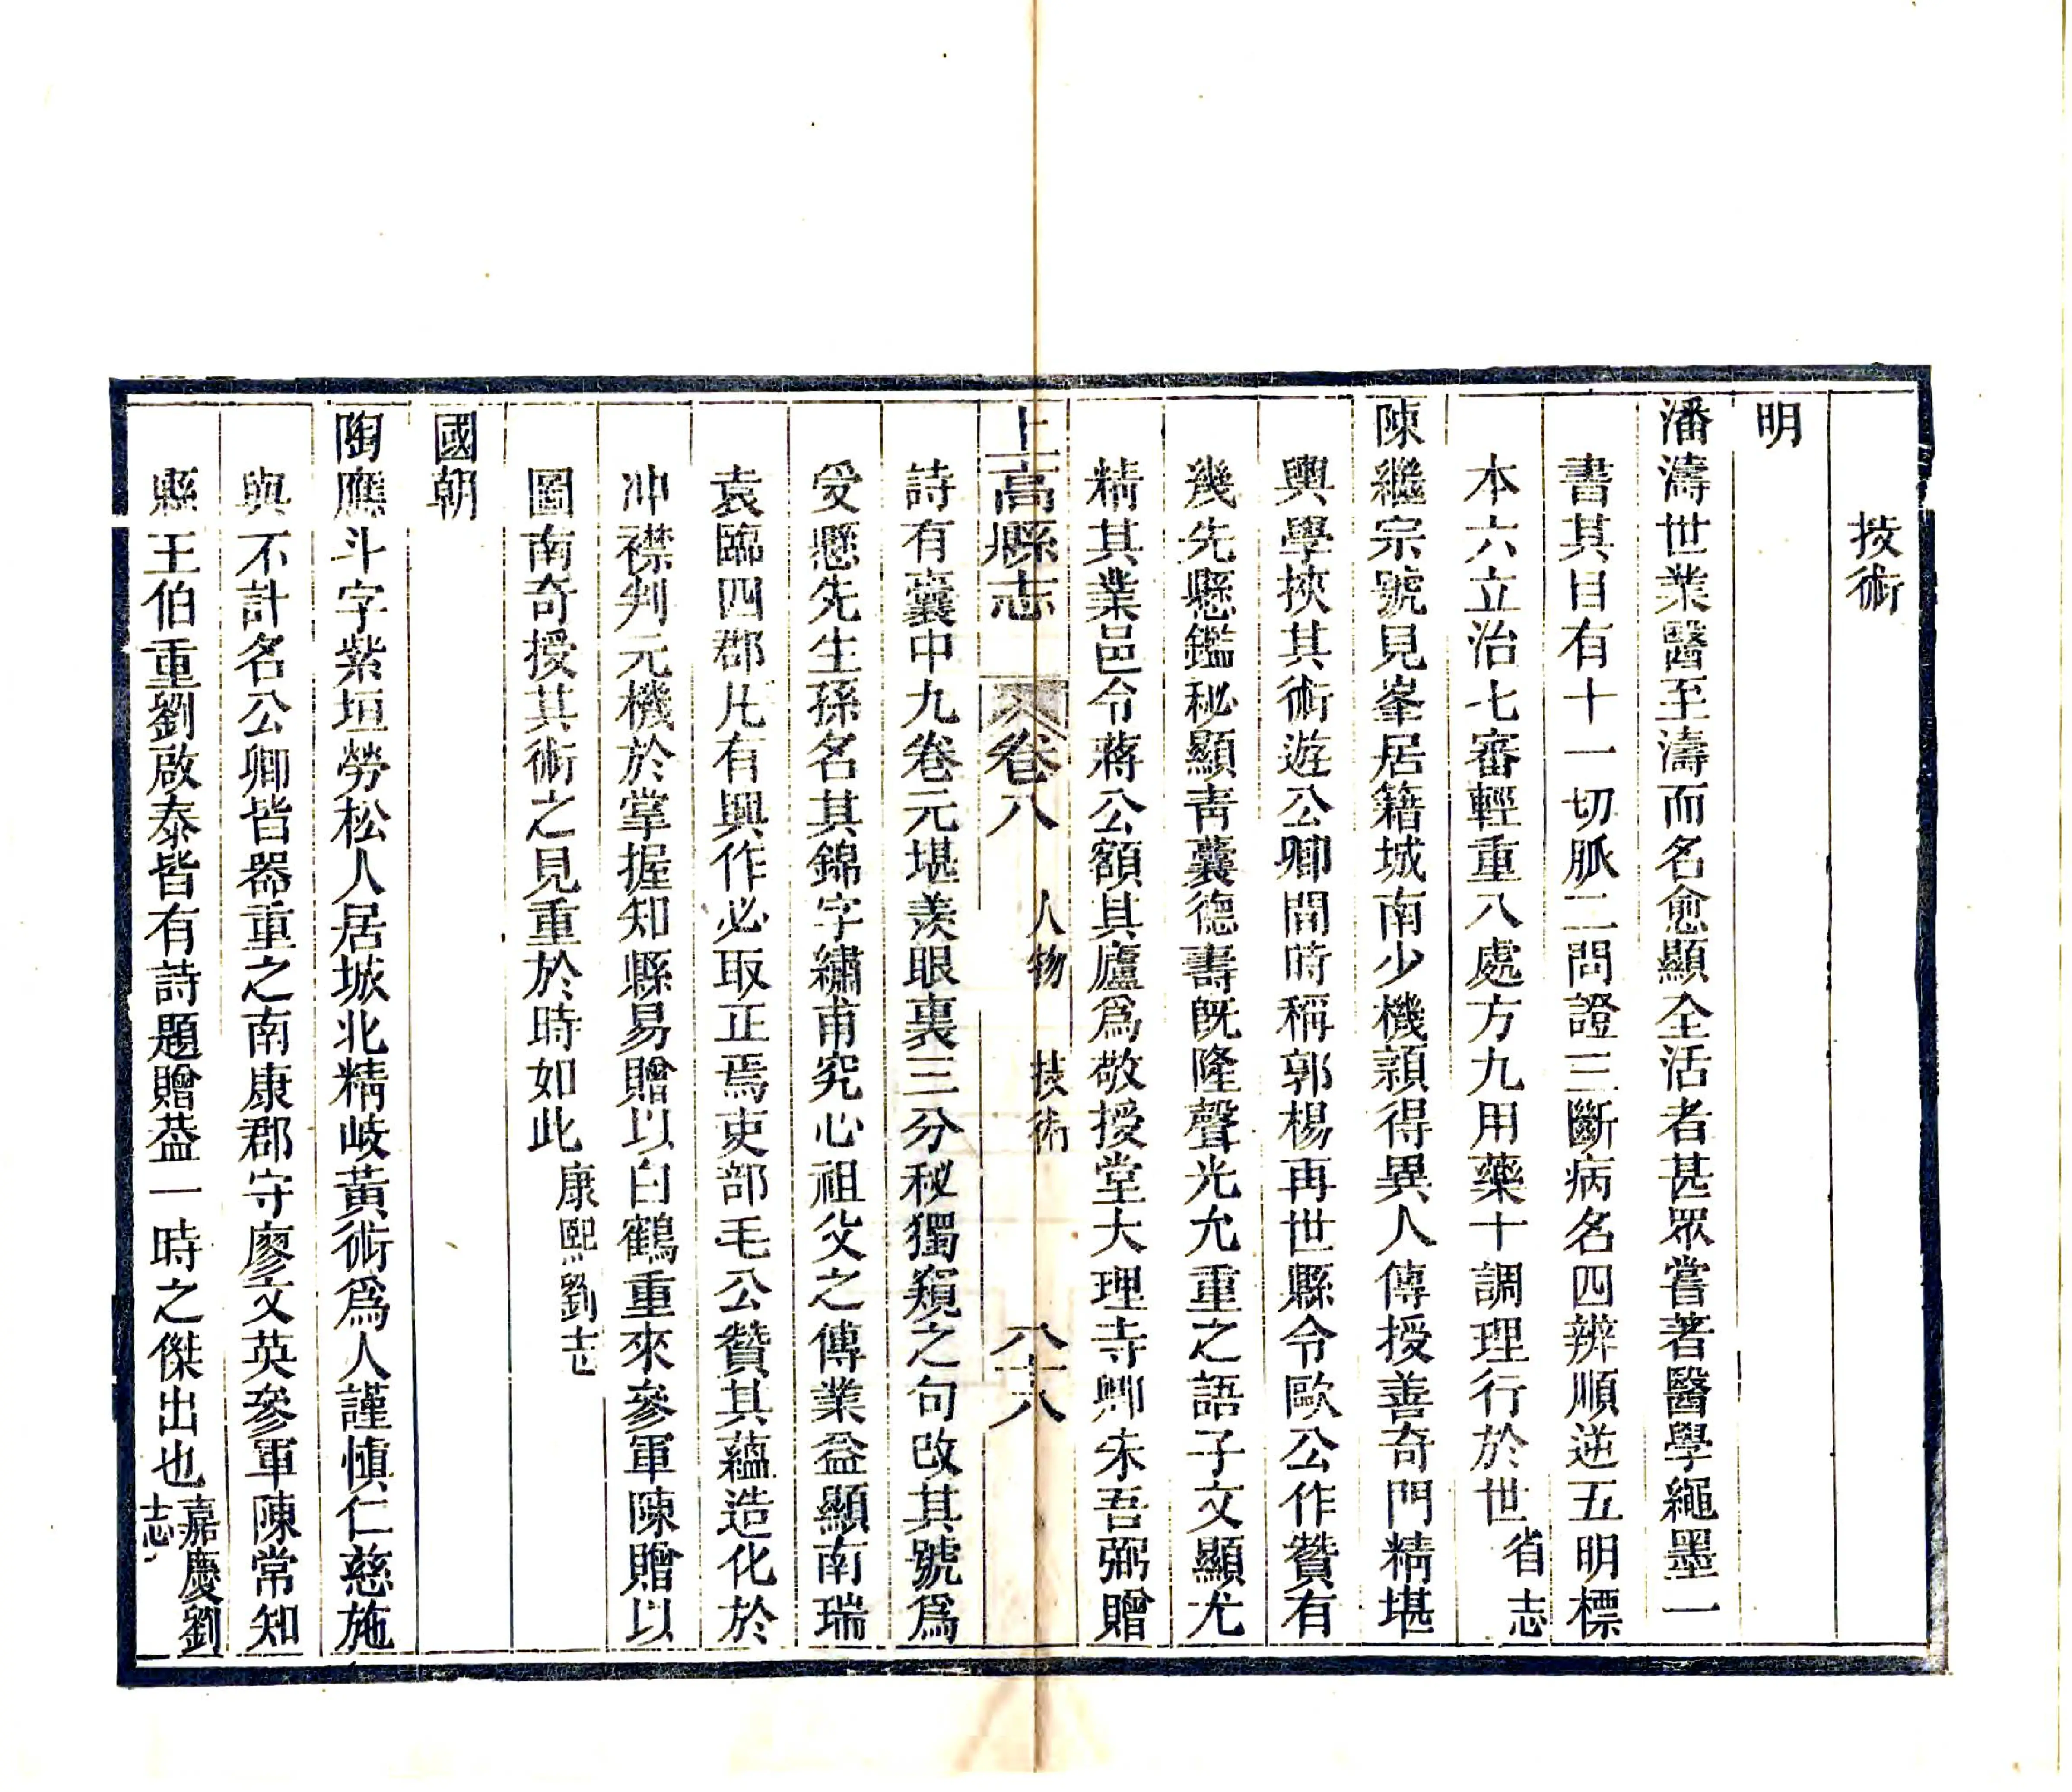 技術
明
潘濤世業醫至濤而名愈顯全活者甚眾嘗著醫學繩墨一
書其目有十一切脈二問證三斷病名四辨順逆五明標
本六立治七審輕重八處方九用藥十調理行於世省志
陳繼宗號見峯居籍城南少機頴得異人傳授善奇門精堪
輿學挾其術遊公卿間時稱郭楊再世縣令歐公作贊有
幾先懸鑑秘顯靑囊德壽旣隆聲光允重之語子文顯尤
精其業邑令蔣公額其廬爲敬授堂大理寺卿朱吾弼贈
上高縣志 卷八 人物 技術 八十八
詩有囊中九卷元堪羨眼裏三分秘獨窺之句改其號爲
受懸先生孫名其錦字繡甫究心祖父之傳業益顯南瑞
袁臨四郡凡有興作必取正焉吏部毛公贊其蘊造化於
冲襟判元機於掌握知縣易贈以白鶴重來參軍陳贈以
圖南奇授其術之見重於時如此康熙劉志
國朝
陶應斗字紫垣勞松人居城北精岐黃術爲人謹慎仁慈施
與不計名公卿皆器重之南康郡守廖文英參軍陳常知
縣王伯重劉啟泰皆有詩題贈葢一時之傑出也嘉慶劉
志